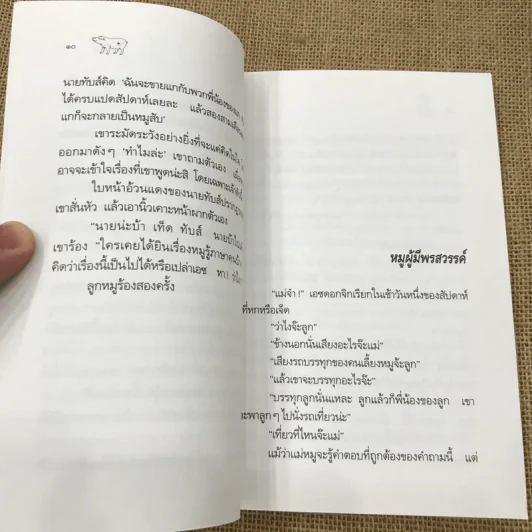 ๑๐
นายทับส์คิด ‘ฉันจะขายแกกับพวกพี่น้องของแก
ได้ครบแปดสัปดาห์เลยละ แล้วสองสามเดือน
แกก็จะกลายเป็นหมูสับ’
เขาระมัดระวังอย่างยิ่งที่จะแต่คิดในใจ
ออกมาดังๆ ‘ทำไมล่ะ’ เขาถามตัวเอง
อาจจะเข้าใจเรื่องที่เขาพูดน่ะสิ โดยเฉพาะเจ้าตัวนี้
ใบหน้าอ้วนแดงของนายทับส์ปรากฏ
เขาสั่นหัว แล้วเอานิ้วเคาะหน้าผากตัวเอง
“นายน่ะบ้า เท็ด ทับส์ นายบ้าไปแล้ว
เขาร้อง “ใครเคยได้ยินเรื่องหมูรู้ภาษาคนบ้าง
คิดว่าเรื่องนี้เป็นไปได้หรือเปล่าเอซ หา!
ลูกหมูร้องสองครั้ง
หมูผู้มีพรสวรรค์
“แม่จ๋า!” เอซดอกจิกเรียกในเช้าวันหนึ่งของสัปดาห์
ที่หกหรือเจ็ด
“ว่าไงจ๊ะลูก”
“ข้างนอกนั่นเสียงอะไรจ๊ะแม่”
“เสียงรถบรรทุกของคนเลี้ยงหมูจ้ะลูก”
“แล้วเขาจะบรรทุกอะไรจ๊ะ”
“บรรทุกลูกนั่นแหละ ลูกแล้วก็พี่น้องของลูก เขา
จะพาลูกๆ ไปนั่งรถเที่ยวน่ะ”
“เที่ยวที่ไหนจ๊ะแม่”
แม้ว่าแม่หมูจะรู้คำตอบที่ถูกต้องของคำถามนี้ แต่